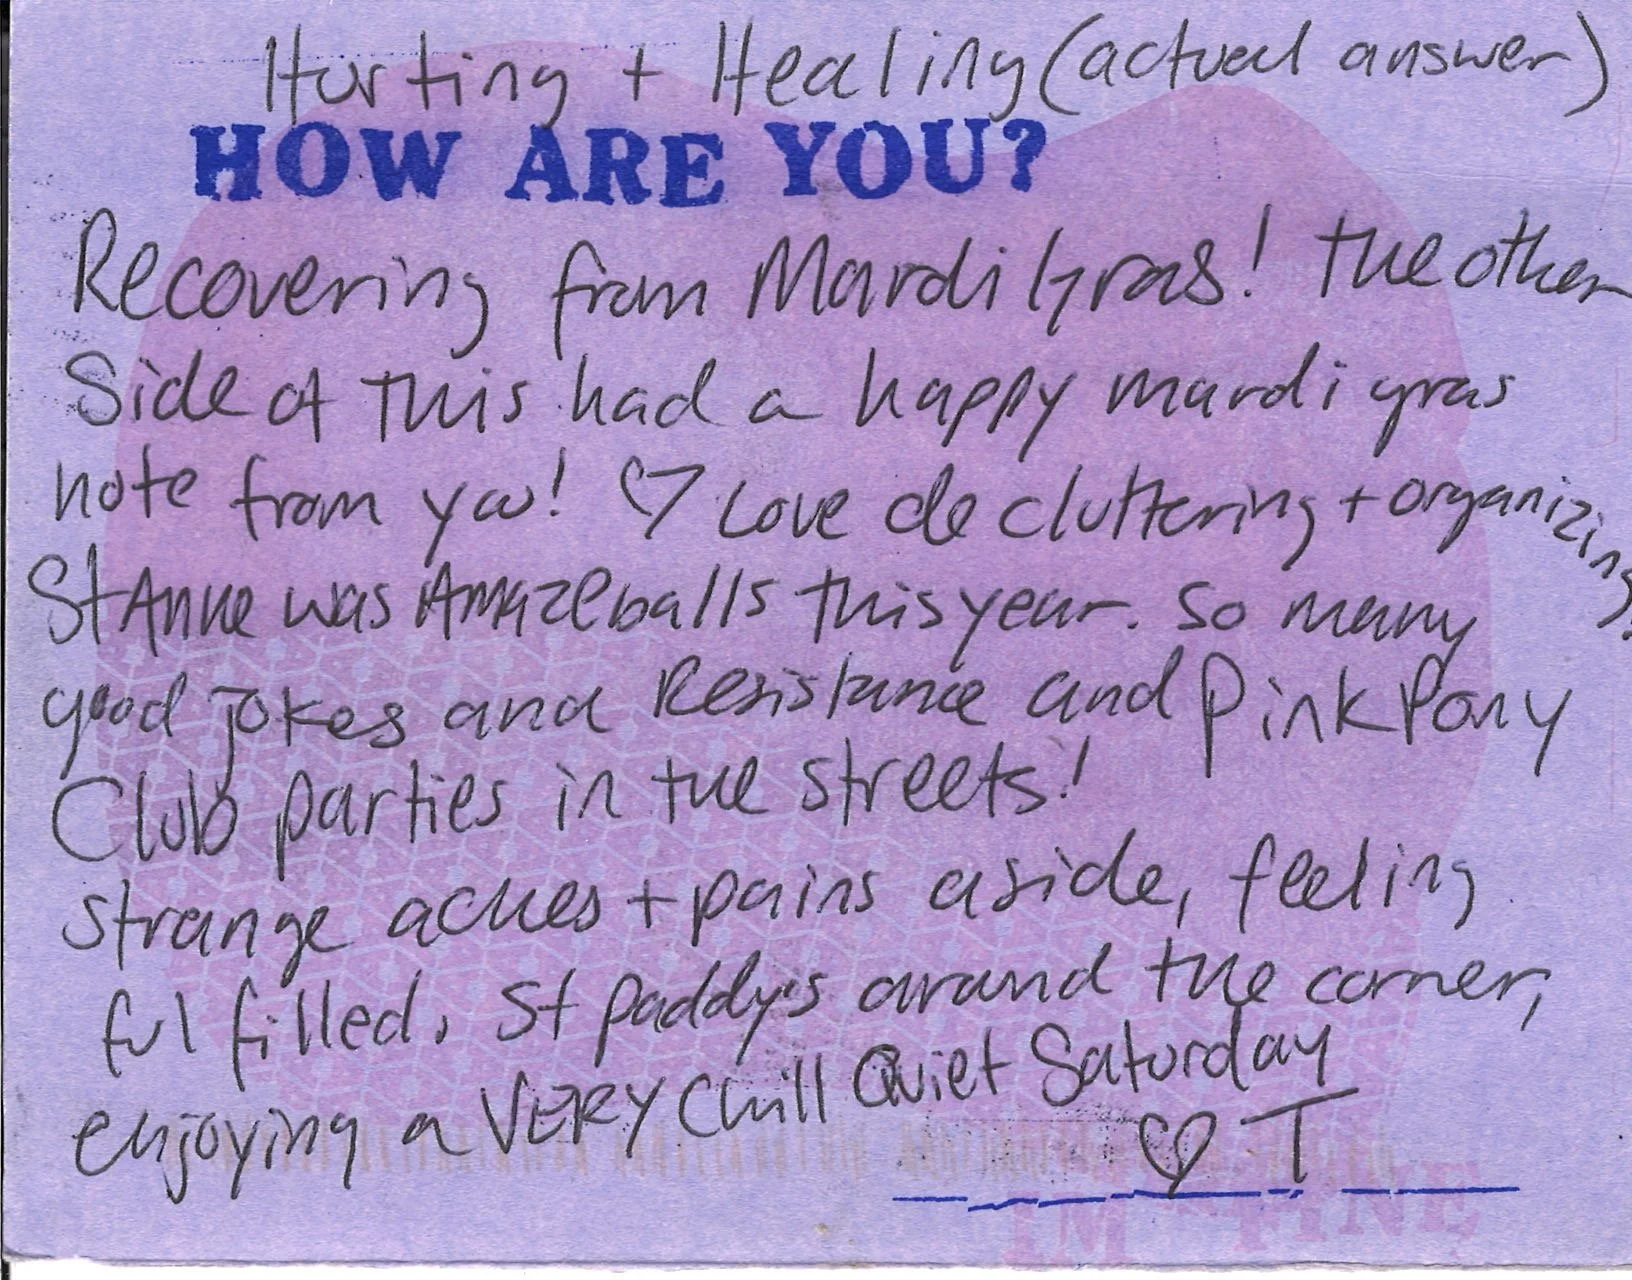 Hurting + Healing (actual answer)
HOW ARE YOU?
Recovering from Mardi Gras! The other
Side of this had a happy mardi gras
note from you! ♡ Love decluttering + organizing!
St Anne was Amazeballs this year. So many
good jokes and Resistance and Pink Pony
Club parties in the streets!
Strange aches + pains aside, feeling
fulfilled. St Paddy's around the corner,
enjoying a VERY Chill Quiet Saturday
♡ T
I'M FINE